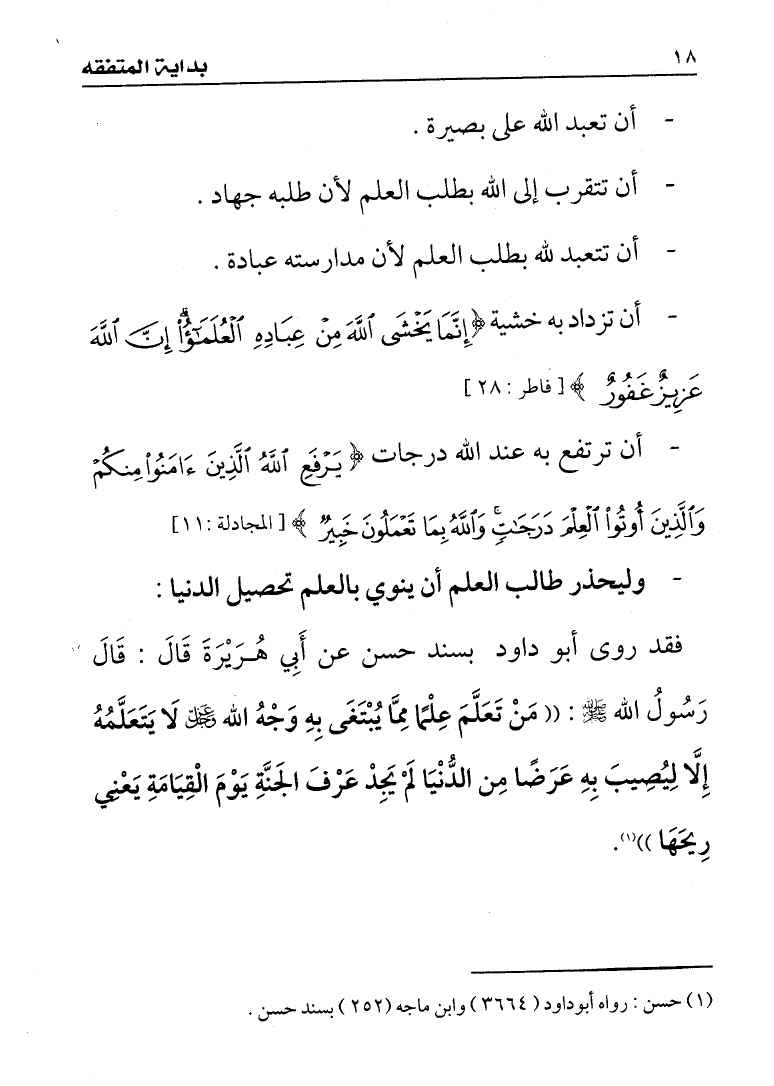 ١٨ بداية المتفقه
- أن تعبد الله على بصيرة .
- أن تتقرب إلى الله بطلب العلم لأن طلبه جهاد .
- أن تتعبد لله بطلب العلم لأن مدارسته عبادة .
- أن تزداد به خشية ﴿إِنَّمَا يَخْشَى ٱللَّهَ مِنْ عِبَادِهِ ٱلْعُلَمَٰٓؤُا۟ ۗ إِنَّ ٱللَّهَ
عَزِيزٌ غَفُورٌ ﴾ [ فاطر : ٢٨ ]
- أن ترتفع به عند الله درجات ﴿ يَرْفَعِ ٱللَّهُ ٱلَّذِينَ ءَامَنُوا۟ مِنكُمْ
وَٱلَّذِينَ أُوتُوا۟ ٱلْعِلْمَ دَرَجَٰتٍ ۚ وَٱللَّهُ بِمَا تَعْمَلُونَ خَبِيرٌ ﴾ [ المجادلة : ١١]
- وليحذر طالب العلم أن ينوي بالعلم تحصيل الدنيا :
فقد روى أبو داود بسند حسن عن أَبِي هُرَيْرَةَ قَالَ : قَالَ
رَسُولُ الله ﷺ : (( مَنْ تَعَلَّمَ عِلْمًا مِمَّا يُبْتَغَى بِهِ وَجْهُ الله عَزَّ وَجَلَّ لَا يَتَعَلَّمُهُ
إِلَّا لِيُصِيبَ بِهِ عَرَضًا مِن الدُّنْيَا لَمْ يَجِدْ عَرْفَ الجَنَّةِ يَوْمَ الْقِيَامَةِ يَعْنِي
رِيحَهَا ))(١).
(١) حسن : رواه أبوداود ( ٣٦٦٤ ) وابن ماجه ( ٢٥٢ ) بسند حسن .